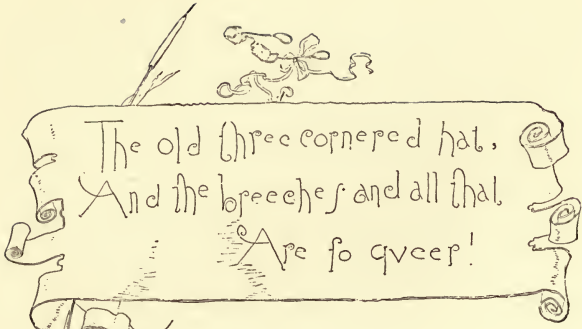 The old three cornered hat,
And the breeches and all that
Are so queer!